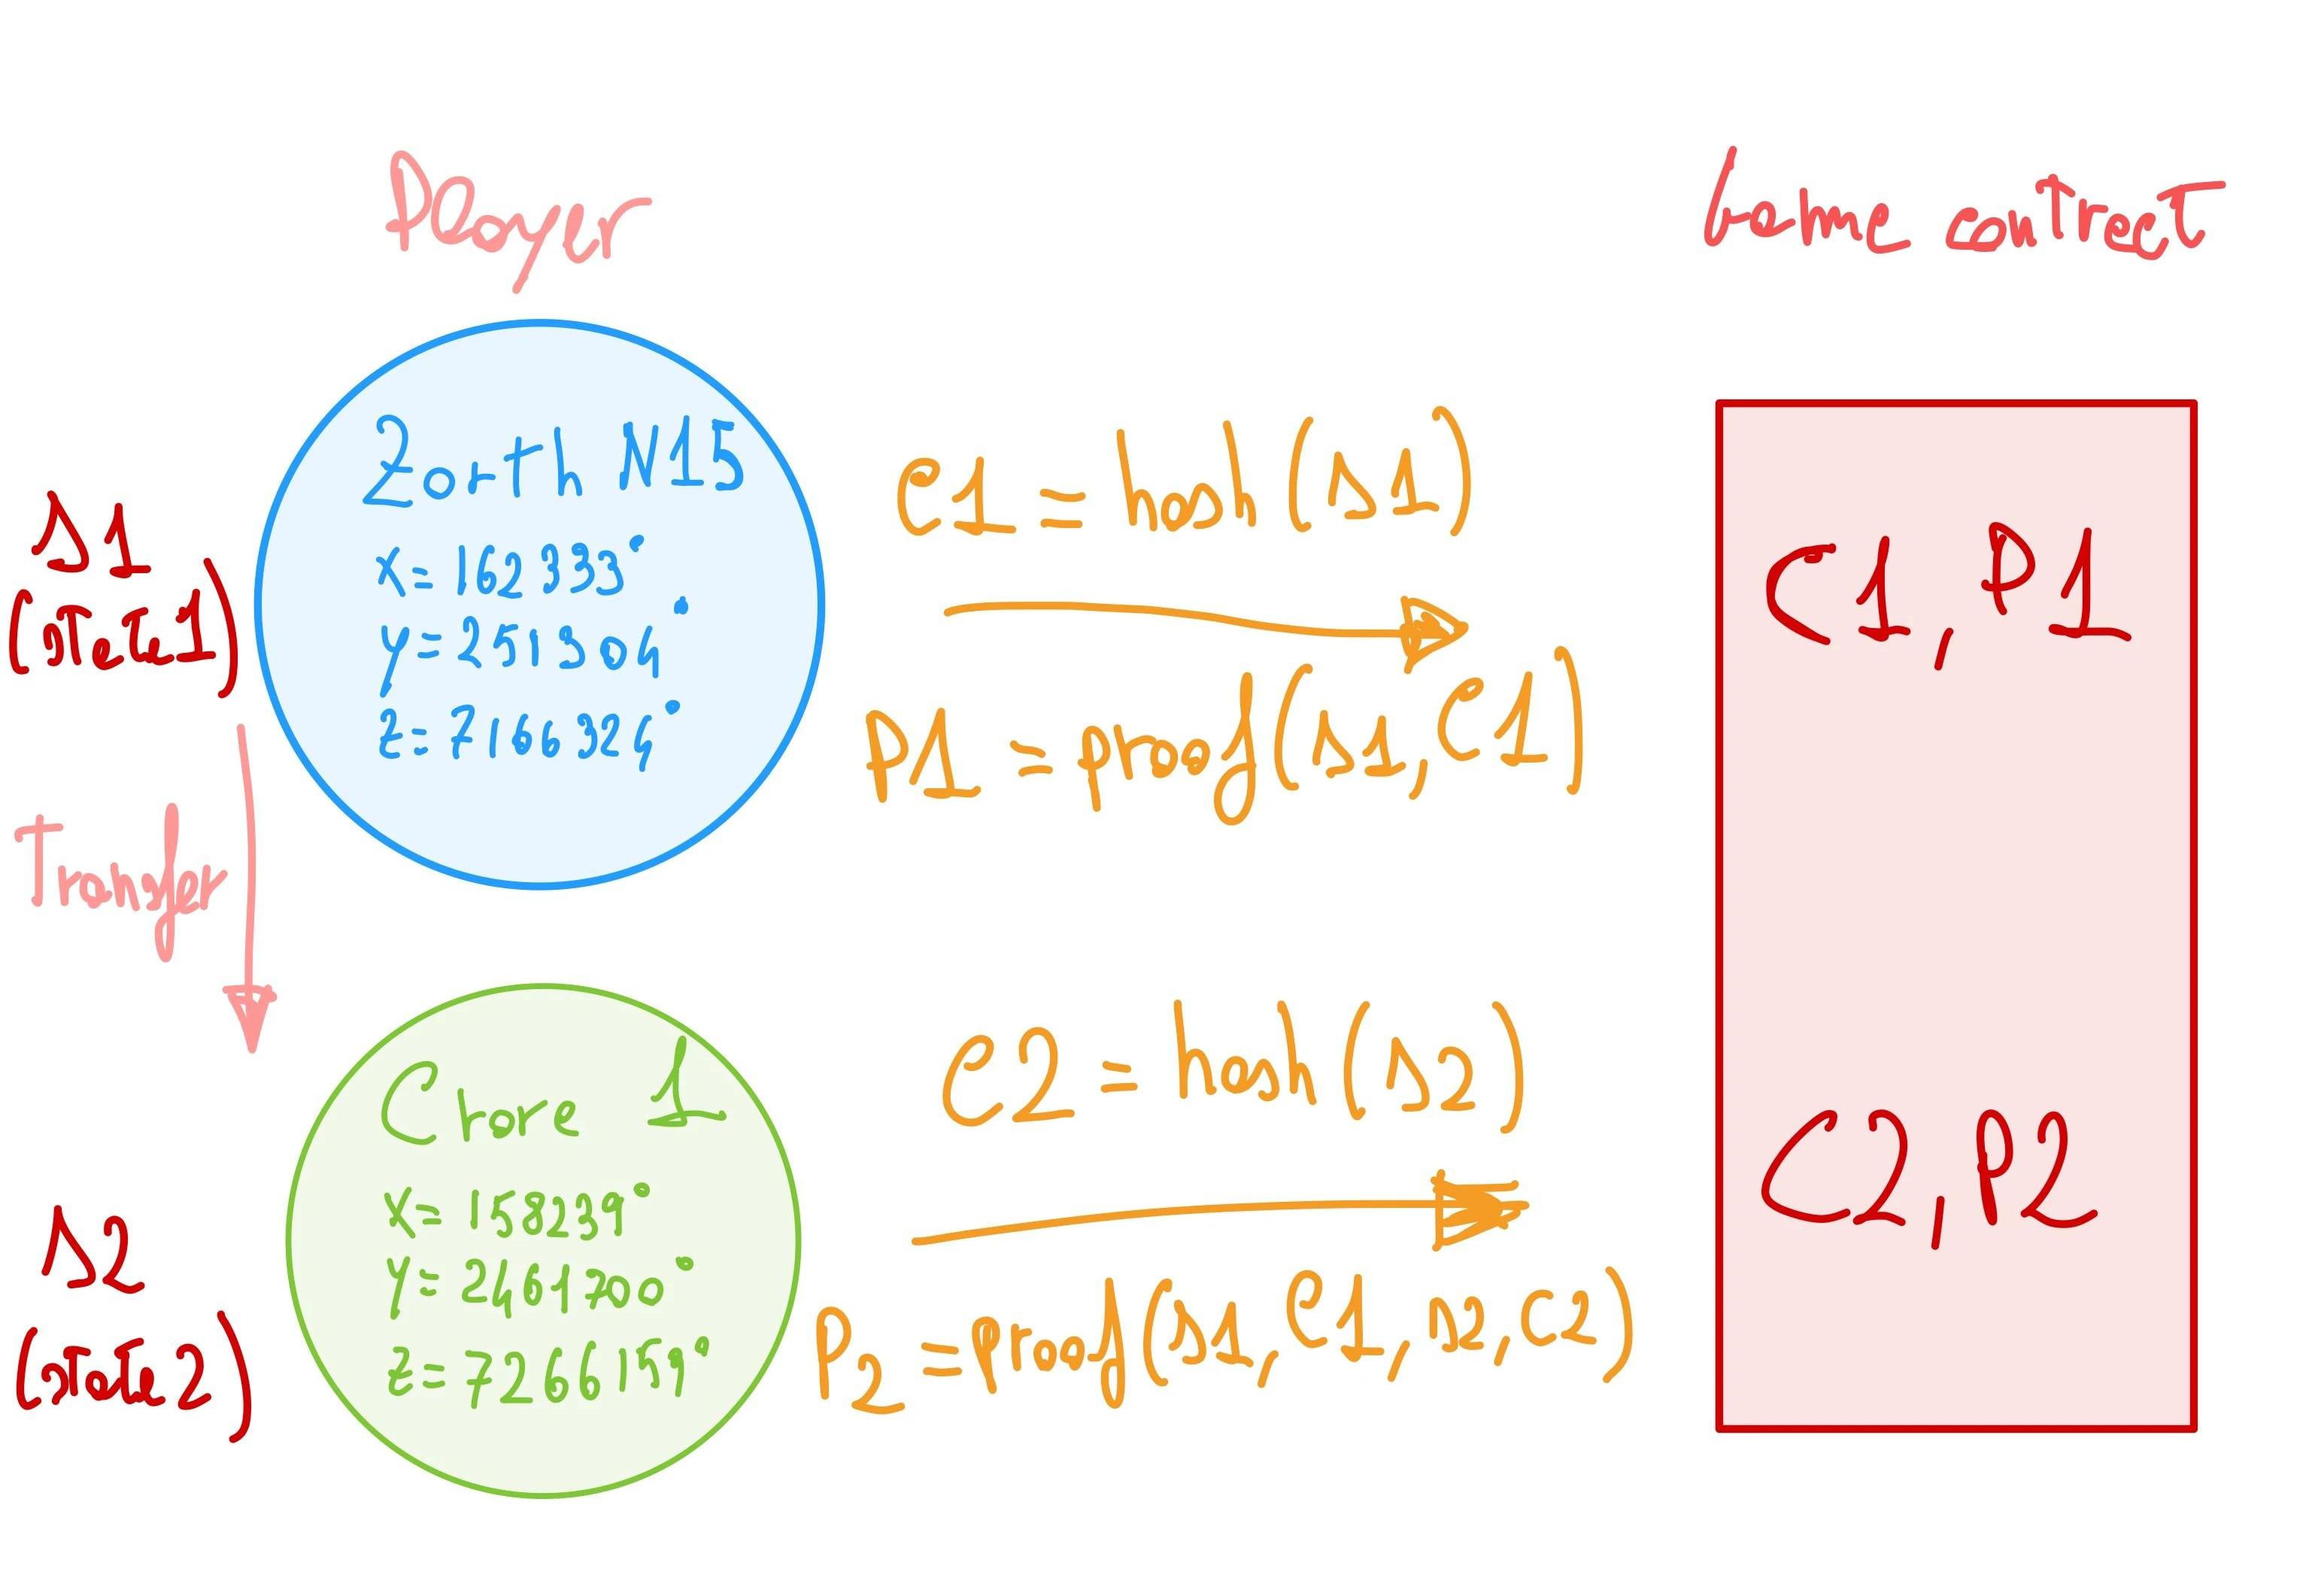 Player
Game contract
Zorth M15
x = 162333°
y = 251304°
z = 7166324°
s1
(state1)
Transfer
c1 = hash(s1)
p1 = proof(s1, c1)
C1, P1
Chore 1
x = 158239°
y = 2461700°
z = 7266159°
s2
(state 2)
c2 = hash(s2)
P2 = proof(s1, c1, s2, c2)
C2, P2